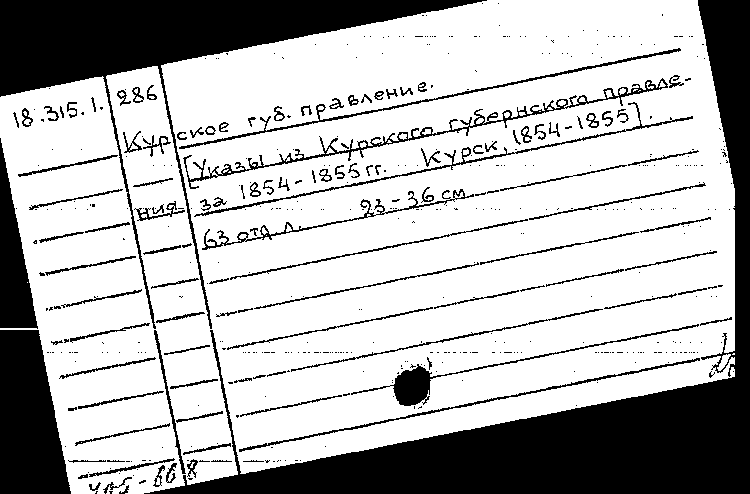 18.315.1. 286
Курское губ. правление.
[Указы из Курского губернского правле-
ния за 1854-1855 гг. Курск, 1854-1855].
63 отд. л. 23-36 см